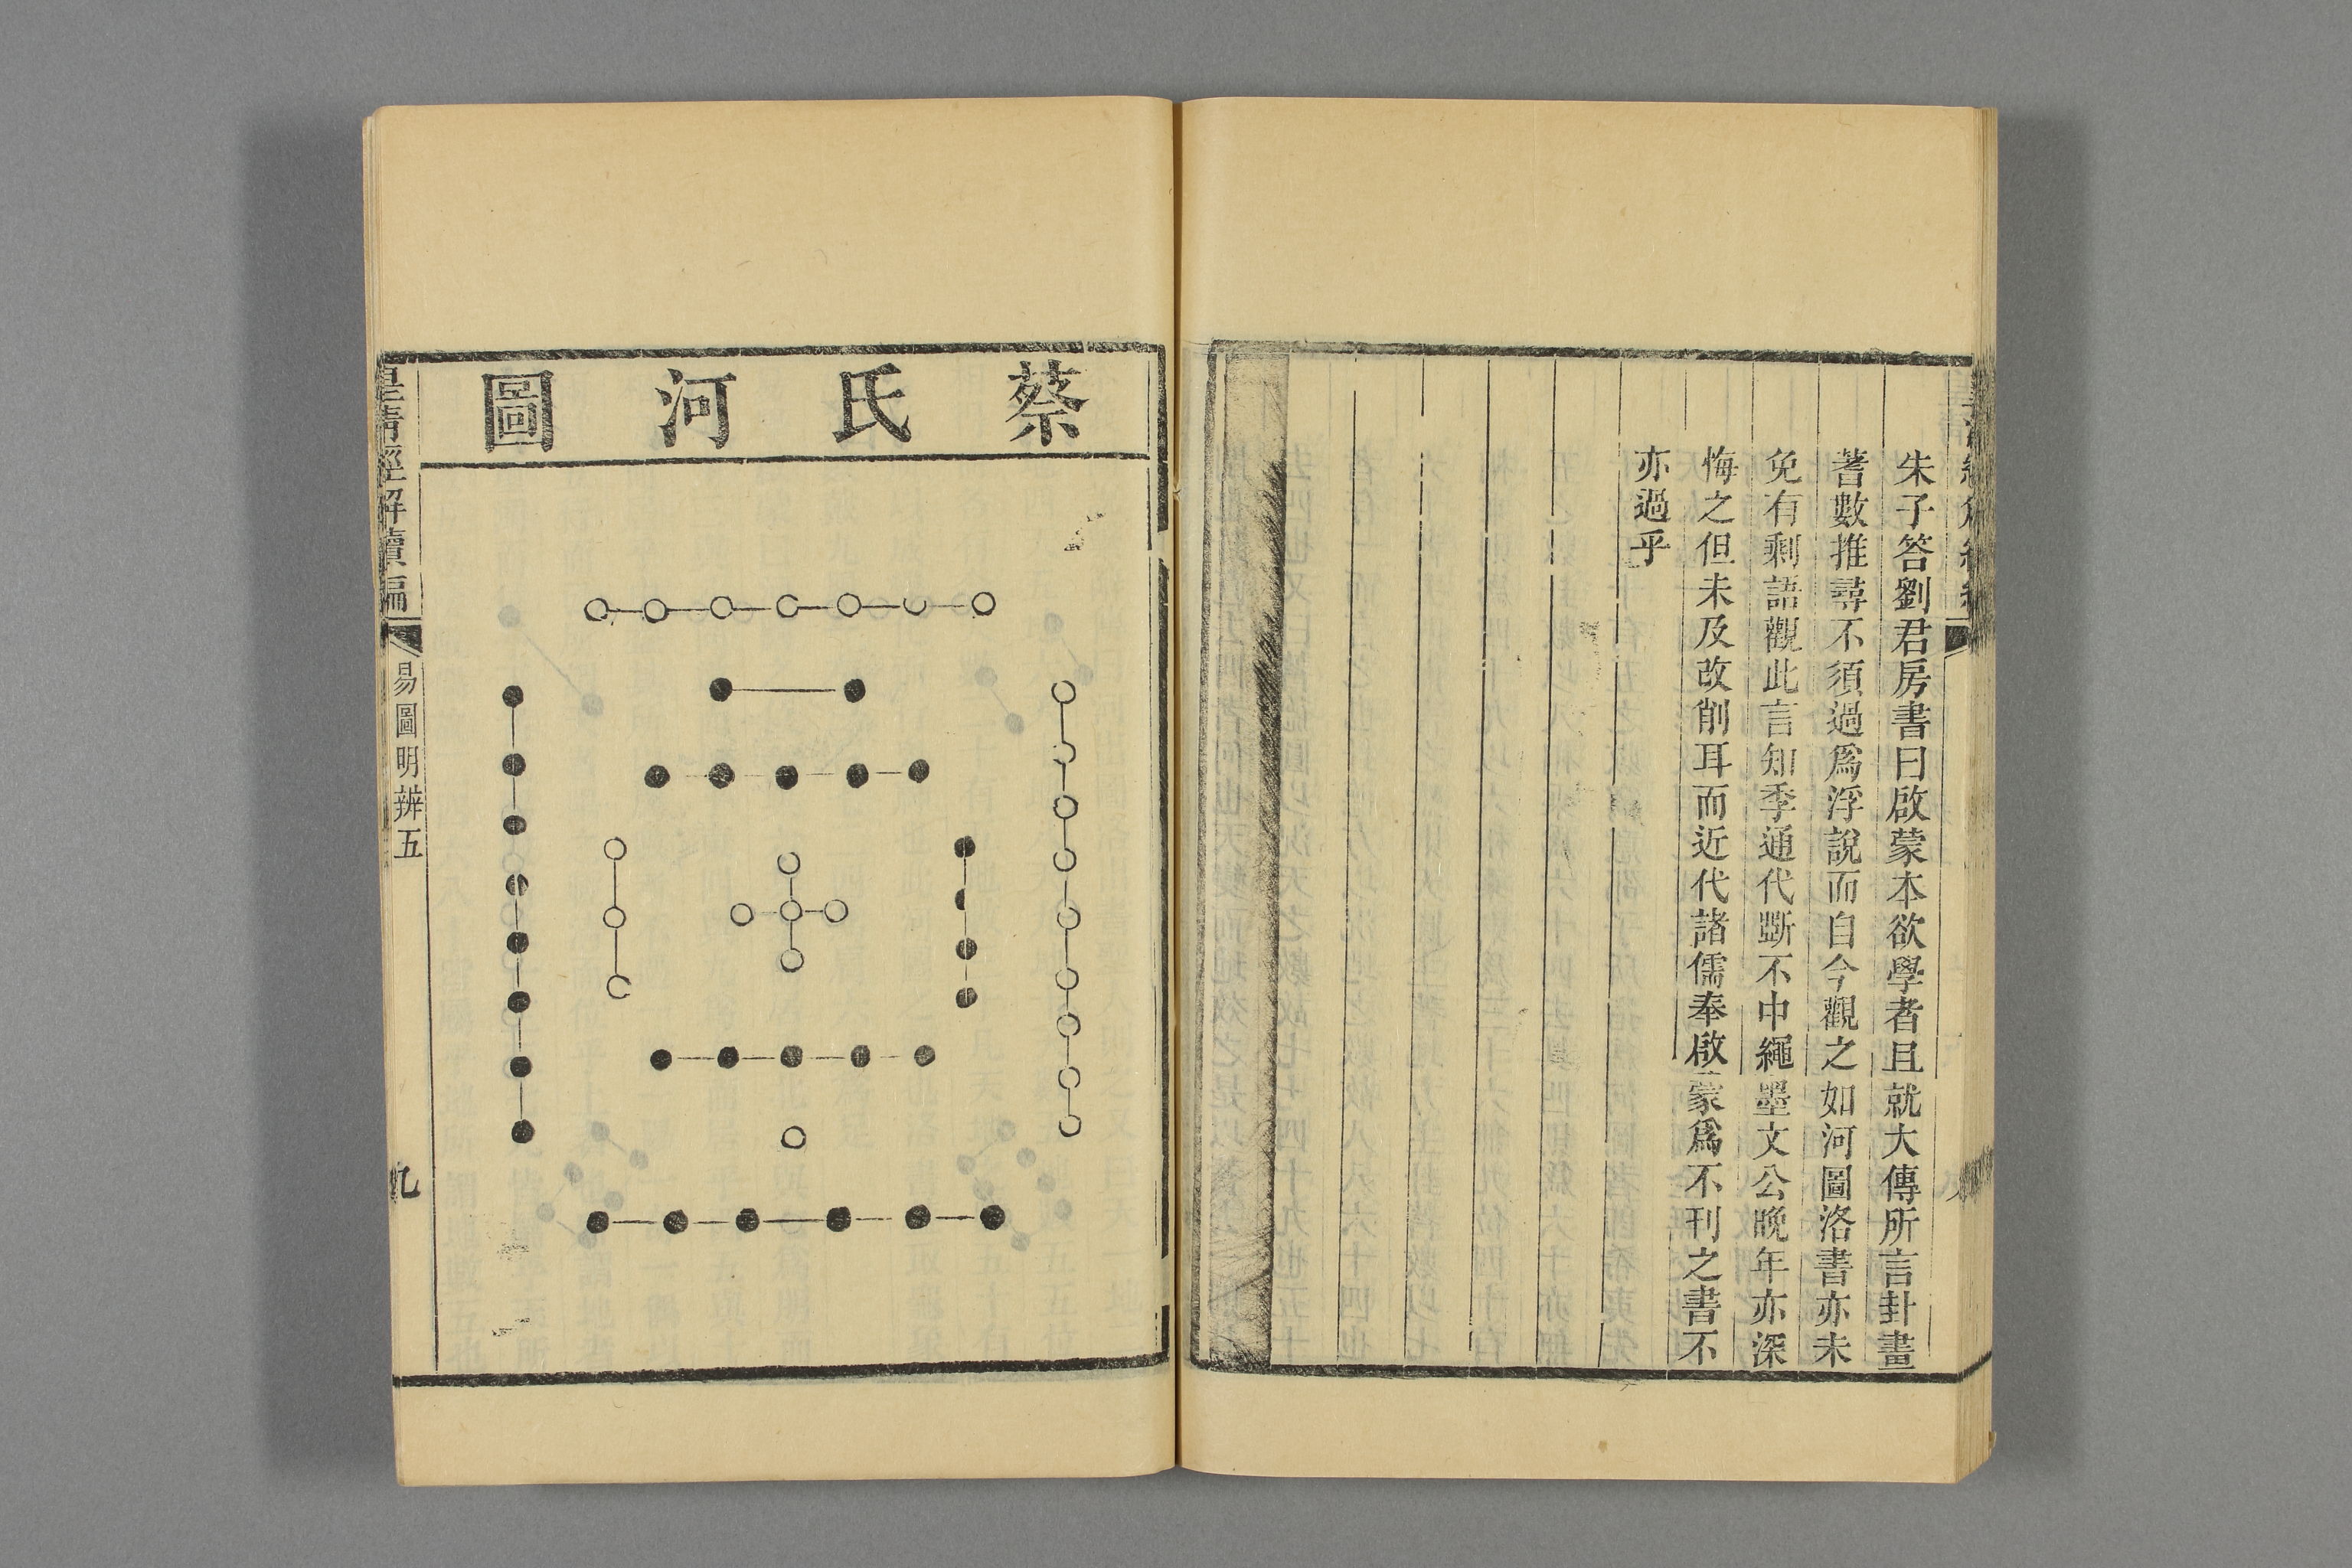 朱子答劉君房書曰啟蒙本欲學者且就大傳所言卦畫
蓍數推尋不須過爲浮說而自今觀之如河圖洛書亦未
免有剩語觀此言知季通代斲不中繩墨文公晚年亦深
悔之但未及改削耳而近代諸儒奉啟蒙爲不刊之書不
亦過乎
蔡氏河圖
皇清經解續編
易圖明辨五
九